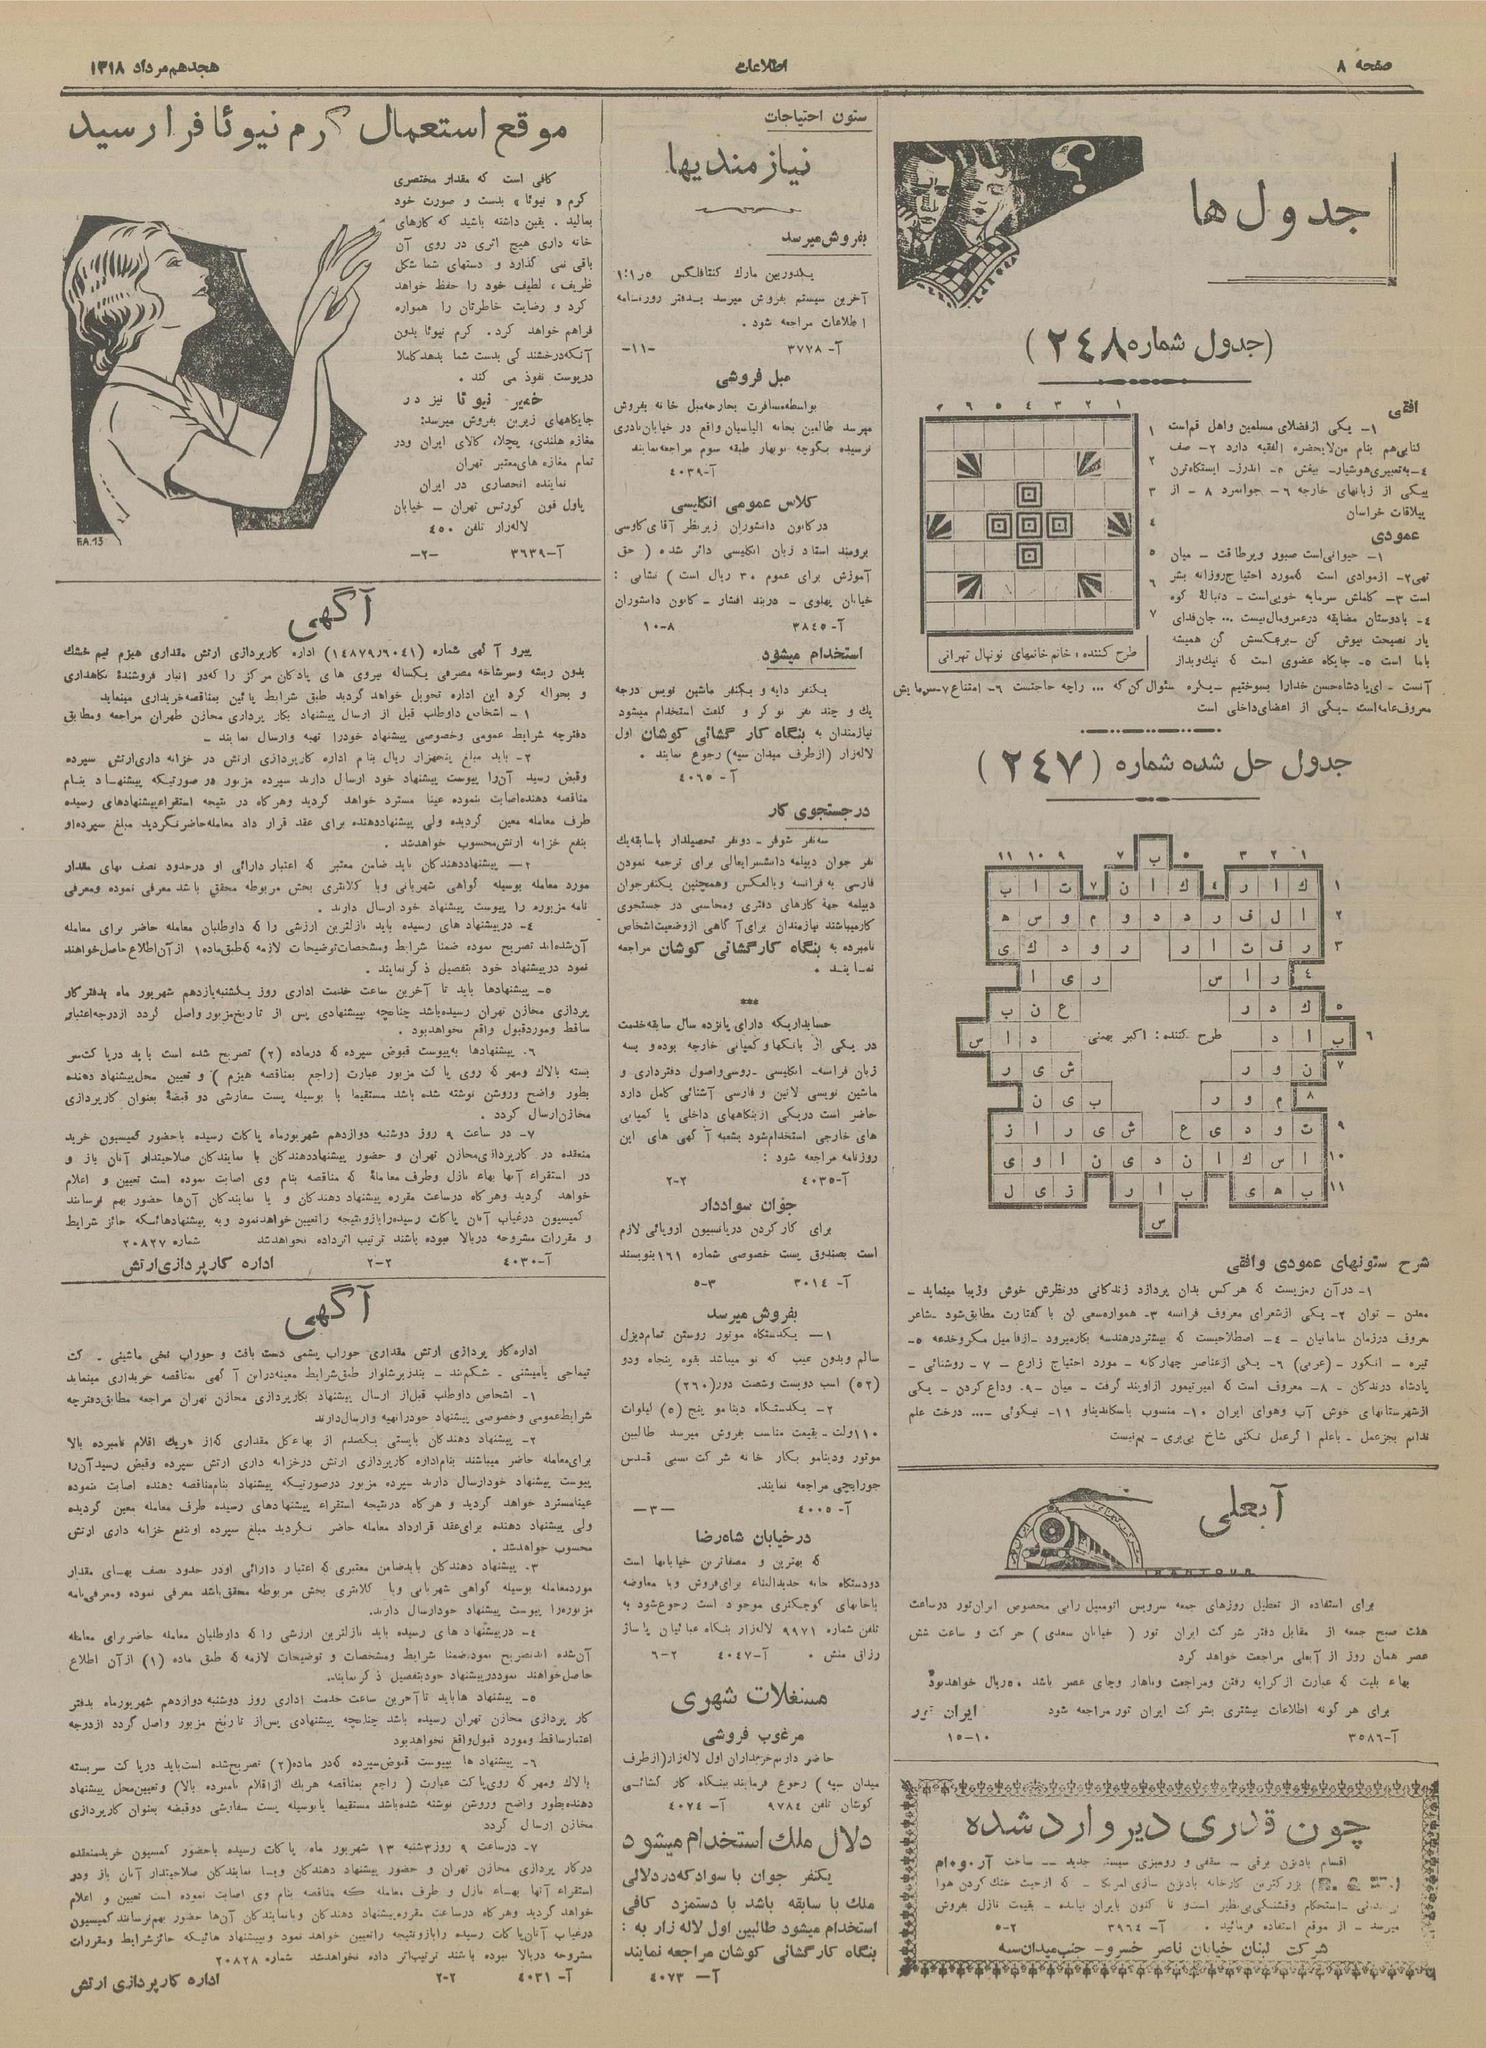 صفحه ۸
اطلاعات
هجدهم مرداد ۱۳۱۸
جدول ها
(جدول شماره ۲۴۸)
افقی
۱- یکی از فضلای مسلمین و اهل قم است
کتابی هم بنام من لایحضره الفقیه دارد ۲- صف
ییلاقات خراسان
عمودی
طرح کننده : خانم خانمهای نونهال تهرانی
معروف عامه است - یکی از اعضای داخلی است
جدول حل شده شماره (۲۴۷)
طرح کننده : اکبر بهمنی
شرح ستونهای عمودی وافقی
۱- در آن رمزیست که هر کس بدان پردازد زندگانی در نظرش خوش و زیبا مینماید -
معدن - توان ۲- یکی از شعرای معروف فرانسه ۳- همواره سعی کن با گفتارت مطابق شود - شاعر
معروف در زمان سامانیان - ۴- اصطلاحیست که بیشتر در هندسه بکار میرود - از فامیل مکر و خدعه ۵-
تیره - انگور - (عربی) ۶- یکی از عناصر چهارگانه - مورد احتیاج زارع - ۷- روشنائی -
پادشاه درندگان - ۸- معروف است که امیر تیمور از او پند گرفت - میان ۹- وداع کردن - یکی
از شهرستانهای خوش آب و هوای ایران ۱۰- منسوب باسکاندیناو ۱۱- نیکوئی -... درخت علم
ندانم بجز عمل - با علم اگر عمل نکنی شاخ بی بری - نیم نیست
آبعلی
IRANTOUR
برای استفاده از تعطیل روزهای جمعه سرویس اتومبیل رانی مخصوص ایران تور در ساعت
هفت صبح جمعه از مقابل دفتر شرکت ایران تور ( خیابان سعدی ) حرکت و ساعت شش
عصر همان روز از آبعلی مراجعت خواهد کرد
بهاء بلیت که عبارت از کرایه رفتن و مراجعت و ناهار و چای عصر باشد ۵۰ ریال خواهد بود
برای هر گونه اطلاعات بیشتری بشرکت ایران تور مراجعه شود
ایران تور
آ-۳۵۸۶
۱۵-۱۰
چون قدری دیر وارد شده
اقسام بادبزن برقی - سقفی و رومیزی سیستم جدید -- ساخت
بزرگترین کارخانه بادبزن سازی امریکا - که از حیث خنک کردن هوا
استحکام و قشنگی بی نظیر است و تا کنون بایران نیامده - بقیمت نازل بفروش
میرسد - از موقع استفاده فرمائید .
آ- ۳۹۶۴
۵-۲
شرکت لبنان خیابان ناصر خسرو - جنب میدان سپه
ستون احتیاجات
نیازمندیها
بفروش میرسد
آخرین سیستم بفروش میرسد بدفتر روزنامه
اطلاعات مراجعه شود .
آ- ۳۷۷۸
-۱۱-
مبل فروشی
بواسطه مسافرت بخارجه مبل خانه بفروش
میرسد طالبین بخانه الیاسیان واقع در خیابان نادری
نرسیده بکوچه نوبهار طبقه سوم مراجعه نمایند
آ-۴۰۳۹
کلاس عمومی انگلیسی
در کانون دانشوران زیر نظر آقای کاوسی
برومند استاد زبان انگلیسی دائر شده ( حق
آموزش برای عموم ۳۰ ریال است ) نشانی :
خیابان پهلوی - دربند افشار - کانون دانشوران
آ- ۳۸۴۵
۱۰-۸
استخدام میشود
یکنفر دایه و یکنفر ماشین نویس درجه
یک و چند نفر نوکر و کلفت استخدام میشود
نیازمندان به بنگاه کارگشائی کوشان اول
لاله زار (از طرف میدان سپه) رجوع نمایند .
آ- ۴۰۶۵
در جستجوی کار
سه نفر شوفر - دو نفر تحصیلدار با سابقه یک
نفر جوان دیپلمه دانشسرایعالی برای ترجمه نمودن
فارسی به فرانسه و بالعکس و همچنین یکنفر جوان
دیپلمه جهة کارهای دفتری و محاسبی در جستجوی
کار میباشند نیازمندان برای آگاهی از وضعیت اشخاص
نامبرده به بنگاه کارگشائی کوشان مراجعه
نمایند .
***
حسابداریکه دارای پانزده سال سابقه خدمت
در یکی از بانکها و کمپانی خارجه بوده و بسه
زبان فرانسه - انگلیسی - روسی و اصول دفترداری و
ماشین نویسی لاتین و فارسی آشنائی کامل دارد
حاضر است در یکی از بنگاههای داخلی یا کمپانی
های خارجی استخدام شود بشعبه آگهی های این
روزنامه مراجعه شود :
آ-۴۰۳۵
۲-۲
جوان سواددار
برای کار کردن در پانسیون اروپائی لازم
است بصندوق پست خصوصی شماره ۱۶۱ بنویسند
آ- ۳۰۱۴
۵-۳
بفروش میرسد
۱- یکدستگاه موتور روستن تمام دیزل
سالم و بدون عیب که نو میباشد بقوه پنجاه و دو
(۵۲) اسب دویست و شصت دور (۲۶۰)
۲- یکدستگاه دینامو پنج (۵) کیلوات
۱۱۰ ولت - بقیمت مناسب بفروش میرسد طالبین
موتور و دینامو بکارخانه شرکت نسبی قدس
جورابچی مراجعه نمایند.
آ- ۴۰۰۵
-۳-
در خیابان شاه رضا
که بهترین و مصفاترین خیابانها است
دو دستگاه خانه جدیدالبناء برای فروش و یا معاوضه
با خانهای کوچکتری موجود است رجوع شود به
تلفن شماره ۹۹۷۱ لاله زار بنگاه عبائیان پاساژ
رزاق منش .
آ-۴۰۴۷
۶-۲
مستغلات شهری
مرغوب فروشی
حاضر داریم خریداران اول لاله زار (از طرف
میدان سپه) رجوع فرمایند ببنگاه کارگشائی
کوشان تلفن ۹۷۸۴
آ- ۴۰۷۴
دلال ملک استخدام میشود
یکنفر جوان با سواد که در دلالی
ملک با سابقه باشد با دستمزد کافی
استخدام میشود طالبین اول لاله زار به :
بنگاه کارگشائی کوشان مراجعه نمایند
آ- ۴۰۷۳
موقع استعمال کرم نیوئا فرا رسید
کافی است که مقدار مختصری
کرم «نیوئا» بدست و صورت خود
بمالید . یقین داشته باشید که کارهای
خانه داری هیچ اثری در روی آن
باقی نمی گذارد و دستهای شما شکل
ظریف ، لطیف خود را حفظ خواهد
کرد و رضایت خاطرتان را همواره
فراهم خواهد کرد . کرم نیوئا بدون
آنکه درخشندگی بدست شما بدهد کاملا
در پوست نفوذ می کند .
خمیر نیوئا نیز در
جایگاههای زیرین بفروش میرسد:
مغازه هلندی، پچلا، کالای ایران و در
تمام مغازه های معتبر تهران
نماینده انحصاری در ایران
پاول فون کورتس تهران - خیابان
لاله زار تلفن ۴۵۰
آ-۳۶۳۹
-۲-
F.A.13
آگهی
پیرو آگهی شماره (۱۴۸۷۹ر۶۰۴۱) اداره کارپردازی ارتش مقداری هیزم نیم خشک
بدون ریشه و سرشاخه مصرفی یکساله نیروی های پادگان مرکز را که در انبار فروشنده نگاهداری
و بحواله کرد این اداره تحویل خواهد گردید طبق شرایط پائین بمناقصه خریداری مینماید
۱- اشخاص داوطلب قبل از ارسال پیشنهاد بکارپردازی مخازن طهران مراجعه و مطابق
دفترچه شرایط عمومی وخصوصی پیشنهاد خود را تهیه وارسال نمایند -
۲- باید مبلغ پنجهزار ریال بنام اداره کارپردازی ارتش در خزانه داری ارتش سپرده
وقبض رسید آن را پیوست پیشنهاد خود ارسال دارند سپرده مزبور در صورتیکه پیشنهاد بنام
مناقصه دهنده اصابت ننموده عینا مسترد خواهد گردید و هرگاه در نتیجه استقراء پیشنهادهای رسیده
طرف معامله معین گردیده ولی پیشنهاد دهنده برای عقد قرار داد معامله حاضر نگردید مبلغ سپرده او
بنفع خزانه ارتش محسوب خواهد شد .
۳- پیشنهاد دهندگان باید ضامن معتبر که اعتبار دارائی او در حدود نصف بهای مقدار
مورد معامله بوسیله گواهی شهربانی و یا کلانتری بخش مربوطه محقق باشد معرفی نموده و معرفی
نامه مزبوره را پیوست پیشنهاد خود ارسال دارند .
۴- در پیشنهاد های رسیده باید نازلترین ارزشی را که داوطلبان معامله حاضر برای معامله
آن شده اند تصریح نموده ضمنا شرایط و مشخصات و توضیحات لازمه که طبق ماده ۱ از آن اطلاع حاصل خواهند
نمود در پیشنهاد خود بتفصیل ذکر نمایند .
۵- پیشنهادها باید تا آخرین ساعت خدمت اداری روز یکشنبه یازدهم شهریور ماه بدفتر کار
پردازی مخازن تهران رسیده باشد چنانچه پیشنهادی پس از تاریخ مزبور واصل گردد از درجه اعتبار
ساقط و مورد قبول واقع نخواهد بود .
۶. پیشنهادها به پیوست قبوض سپرده که در ماده (۲) تصریح شده است باید در پاکت سر
بسته بالاک و مهر که روی پاکت مزبور عبارت (راجع بمناقصه هیزم) و تعیین محل پیشنهاد دهنده
بطور واضح و روشن نوشته شده باشد مستقیما یا بوسیله پست سفارشی دو قبضة بعنوان کارپردازی
مخازن ارسال گردد .
۷- در ساعت ۹ روز دوشنبه دوازدهم شهریور ماه پاکات رسیده با حضور کمیسیون خرید
منعقده در کارپردازی مخازن تهران و حضور پیشنهاد دهندگان یا نمایندگان صلاحیتدار آنان باز و
در استقراء آنها بهاء نازل و طرف معامله که مناقصه بنام وی اصابت نموده است تعیین و اعلام
خواهد گردید و هرگاه در ساعت مقرره پیشنهاد دهندگان و یا نمایندگان آن ها حضور بهم نرسانند
کمیسیون در غیاب آنان پاکات رسیده را باز و نتیجه را تعیین خواهد نمود و به پیشنهادهائیکه حائز شرایط
و مقررات مشروحه در بالا نبوده باشند ترتیب اثر داده نخواهد شد
شماره ۲۰۸۲۷
آ-۴۰۳۰
۲-۲
اداره کارپردازی ارتش
آگهی
اداره کارپردازی ارتش مقداری جوراب پشمی دست بافت و جوراب نخی ماشینی . کت
۱- اشخاص داوطلب قبل از ارسال پیشنهاد بکارپردازی مخازن تهران مراجعه مطابق دفترچه
شرایط عمومی وخصوصی پیشنهاد خود را تهیه و ارسال دارند
۲- پیشنهاد دهندگان بایستی یکصدم از بهاء کل مقداری که از هر یک اقلام نامبرده بالا
برای معامله حاضر میباشند بنام اداره کارپردازی ارتش در خزانه داری ارتش سپرده وقبض رسید آن را
پیوست پیشنهاد خود ارسال دارند سپرده مزبور در صورتیکه پیشنهاد بنام مناقصه دهنده اصابت ننموده
عینا مسترد خواهد گردید و هرگاه در نتیجه استقراء پیشنهادهای رسیده طرف معامله معین گردیده
ولی پیشنهاد دهنده برای عقد قرارداد معامله حاضر نگردید مبلغ سپرده او بنفع خزانه داری ارتش
محسوب خواهد شد .
۳. پیشنهاد دهندگان باید ضامن معتبری که اعتبار دارائی او در حدود نصف بهای مقدار
مورد معامله بوسیله گواهی شهربانی و یا کلانتری بخش مربوطه محقق باشد معرفی نموده و معرفی نامه
مزبوره را پیوست پیشنهاد خود ارسال دارند.
۴- در پیشنهاد های رسیده باید نازلترین ارزشی را که داوطلبان معامله حاضر برای معامله
آن شده اند تصریح نموده ضمنا شرایط و مشخصات و توضیحات لازمه که طبق ماده (۱) از آن اطلاع
حاصل خواهند نمود در پیشنهاد خود بتفصیل ذکر نمایند.
۵- پیشنهاد ها باید تا آخرین ساعت خدمت اداری روز دوشنبه دوازدهم شهریور ماه بدفتر
کار پردازی مخازن تهران رسیده باشد چنانچه پیشنهادی پس از تاریخ مزبور واصل گردد از درجه
اعتبار ساقط و مورد قبول واقع نخواهد بود
۶- پیشنهاد ها بپیوست قبوض سپرده که در ماده (۲) تصریح شده است باید در پاکت سربسته
بالاک و مهر که روی پاکت عبارت ( راجع بمناقصه هر یک از اقلام نامبرده بالا ) و تعیین محل پیشنهاد
دهنده بطور واضح و روشن نوشته شده باشد مستقیما یا بوسیله پست سفارشی دو قبضه بعنوان کارپردازی
مخازن ارسال گردد
۷- در ساعت ۹ روز ۳ شنبه ۱۳ شهریور ماه پاکات رسیده با حضور کمسیون خرید منعقده
در کارپردازی مخازن تهران و حضور پیشنهاد دهندگان و یا نمایندگان صلاحیتدار آنان باز و در
استقراء آنها بهاء نازل و طرف معامله که مناقصه بنام وی اصابت نموده است تعیین و اعلام
خواهد گردید و هرگاه در ساعت مقرره پیشنهاد دهندگان و یا نمایندگان آن ها حضور بهم نرسانند کمیسیون
در غیاب آنان پاکات رسیده را باز و نتیجه را تعیین خواهد نمود و بپیشنهاد هائیکه حائز شرایط و مقررات
مشروحه در بالا نبوده باشند ترتیب اثر داده نخواهد شد شماره ۲۰۸۲۸
آ- ۴۰۳۱
۲-۲
اداره کارپردازی ارتش